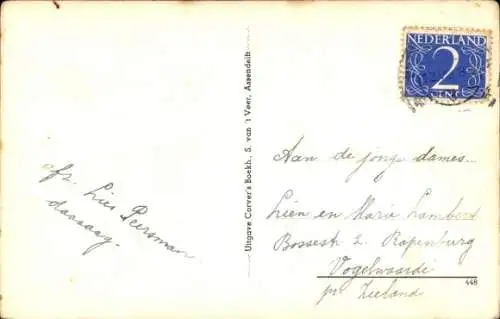 NEDERLAND
2
CENT
afz. Lies Peersman
Uitgave Carver's Boekh., S. van 't Veer, Assendelft
Aan de jonge dames...
Lien en Marie Lambert
Bossestr 2. Rapenburg
Vogelwaarde
pr Zeeland
448